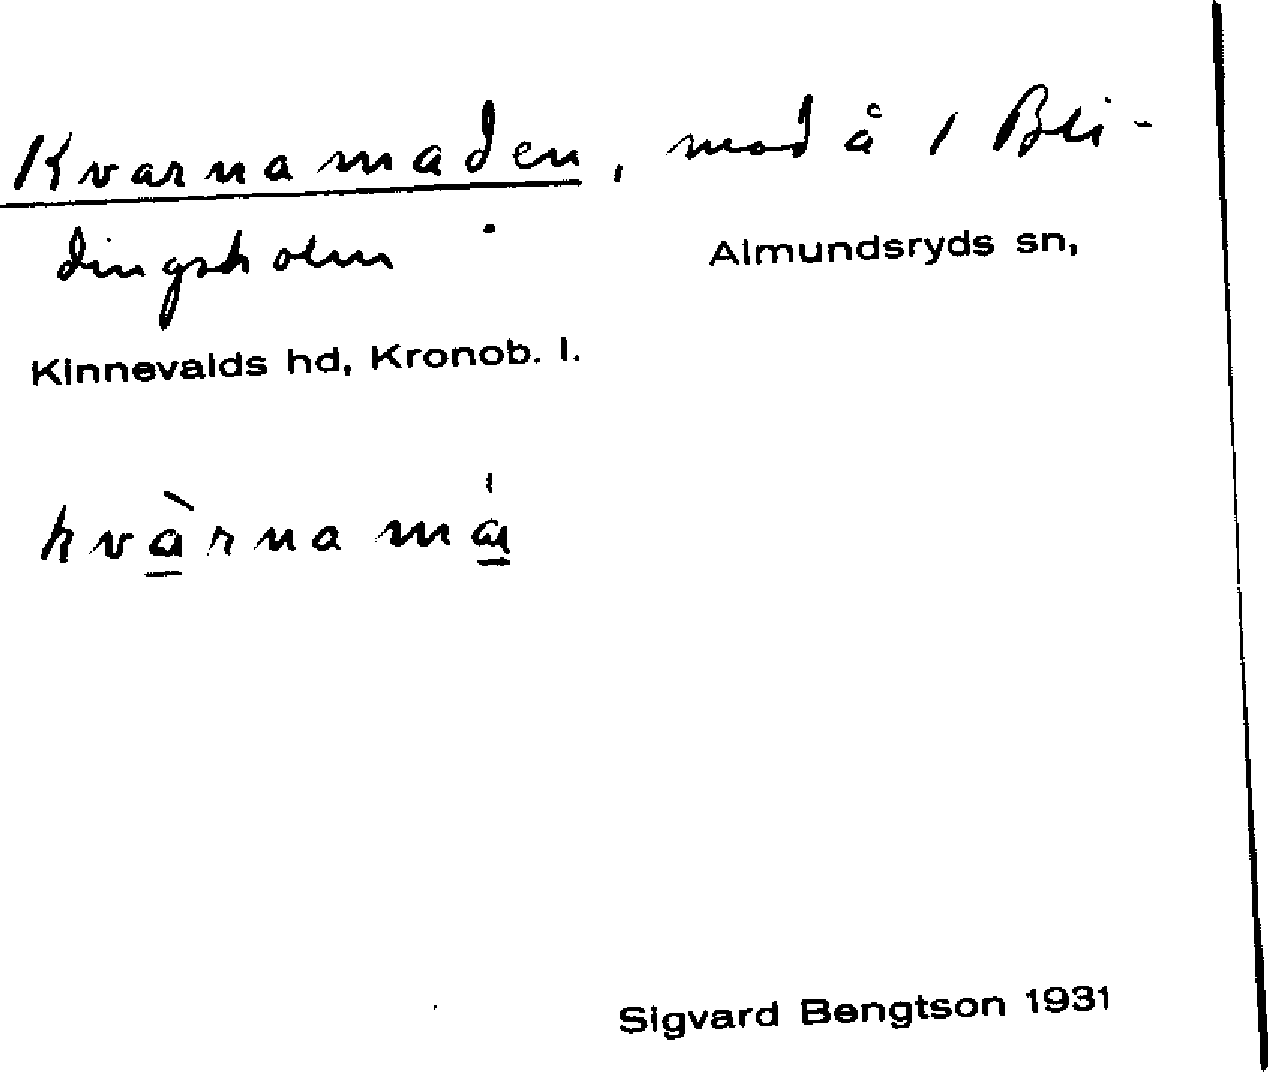 Kvarnamaden, mad å 1 Bli-
dingsholm Almundsryds sn,
Kinnevalds hd, Kronob. l.
kvàrnamá
Sigvard Bengtson 1931